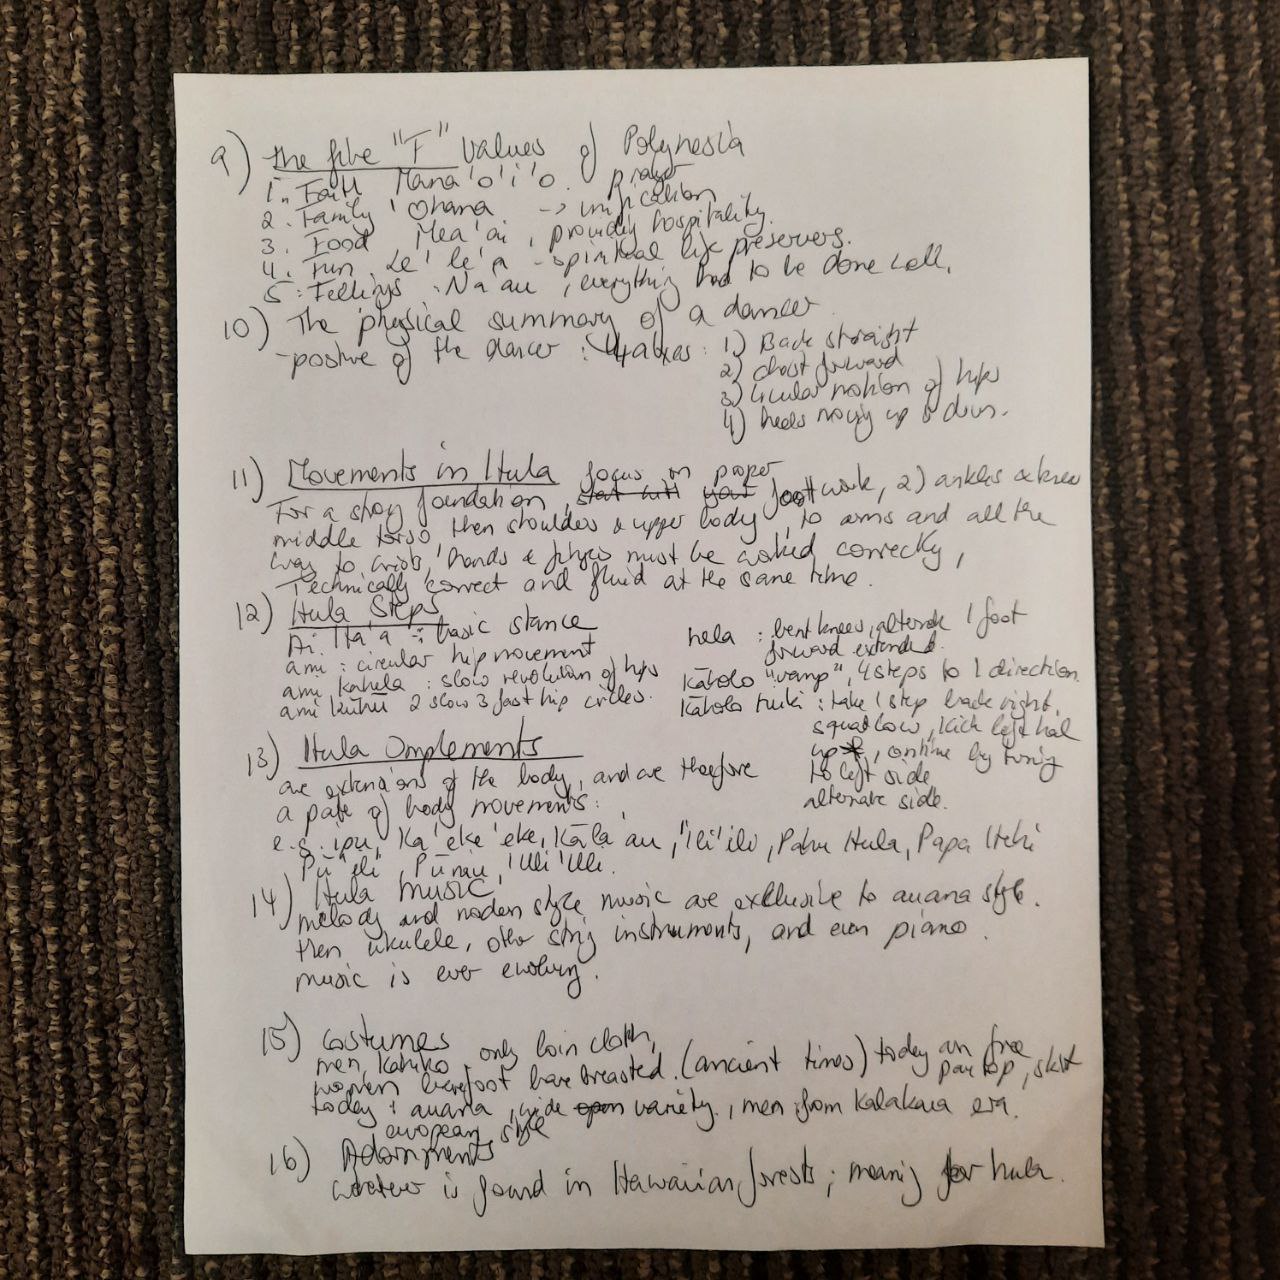 9) The five "F" values of Polynesia
1. Faith Mana'o'i'o. prayer
2. Family 'Ohana -> unification
3. Food Mea'ai, providing hospitality.
4. Fun Le'le'a - spiritual life preservers.
5. Feelings Na'au, everything had to be done well.
10) The physical summary of a dancer
- posture of the dancer :
1) Back straight
2) chest forward
3) circular motion of hips
4) heels moving up & down.
11) Movements in Hula focus on proper
For a strong foundation, start with your footwork, 2) ankles & knees
middle torso, then shoulders & upper body, to arms and all the
way to wrists, hands & fingers must be worked correctly,
Technically correct and fluid at the same time.
12) Hula Steps
Ai Ha'a : basic stance
ami : circular hip movement
ami kahela : slow revolution of hips
ami kūkū 2 slow 3 fast hip circles.
hela : bent knees, alternate 1 foot
forward extended.
Kāholo "vamp", 4 steps to 1 direction.
Kāholo huki : take 1 step back right,
squat low, kick left heel
up, continue by turning
to left side
alternate side.
13) Hula Implements
are extensions of the body, and are therefore
a part of body movements:
e.g. ipu, Ka'eke'eke, Kāla'au, 'Ili'ili, Pahu Hula, Papa Hehi
Pū'ili, Pūniu, 'Uli'Uli.
14) Hula music
melody and modern style music are exclusive to auana style.
then ukulele, other string instruments, and even piano.
music is ever evolving.
15) Costumes
men, Kahiko, only loin cloth,
women barefoot bare breasted. (ancient times) today
top, skirt
today : auana, wide open variety, men from Kalakaua era.
european style
16) Adornments
whatever is found in Hawaiian forests; meaning for hula.